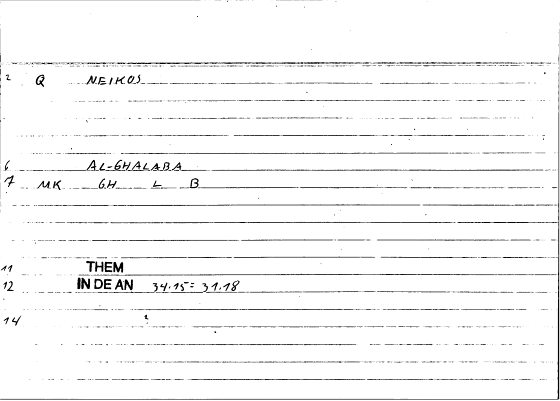 2 Q NEIKOS
6 AL-GHALABA
7 MK GH L B
11 THEM
12 IN DE AN 34.15 = 31.18
14